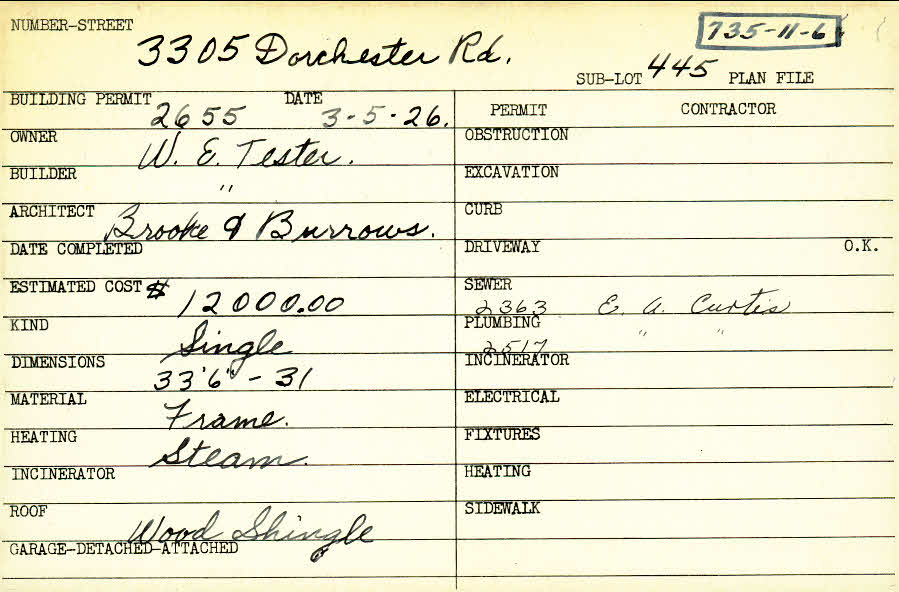 NUMBER-STREET 3305 Dorchester Rd. 735-11-6
SUB-LOT 445 PLAN FILE
BUILDING PERMIT 2655 DATE 3-5-26.
OWNER W. E. Tester.
BUILDER "
ARCHITECT Brooke & Burrows.
DATE COMPLETED
ESTIMATED COST $12000.00
KIND Single
DIMENSIONS 33'6" - 31
MATERIAL Frame.
HEATING Steam.
INCINERATOR
ROOF Wood Shingle
GARAGE-DETACHED-ATTACHED
PERMIT CONTRACTOR
OBSTRUCTION
EXCAVATION
CURB
DRIVEWAY O.K.
SEWER 2363 E. A. Curtis
PLUMBING 2517 " "
INCINERATOR
ELECTRICAL
FIXTURES
HEATING
SIDEWALK